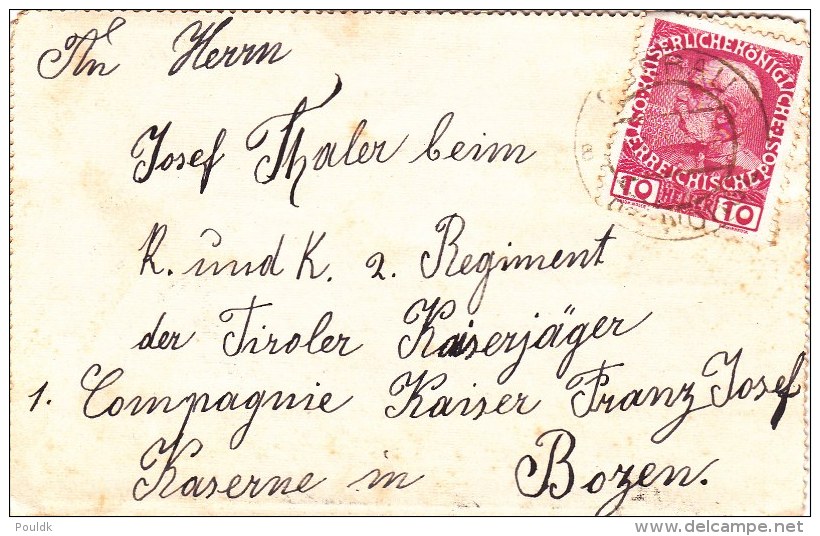 An Herrn
Josef Thaler beim
K. und K. 2. Regiment
der Tiroler Kaiserjäger
1. Compagnie Kaiser Franz Josef
Kaserne in Bozen.
KAISERLICHEKÖNIGLICHE
ÖSTERREICHISCHE POST
10 HELLER 10
Pouldk
delcampe.net